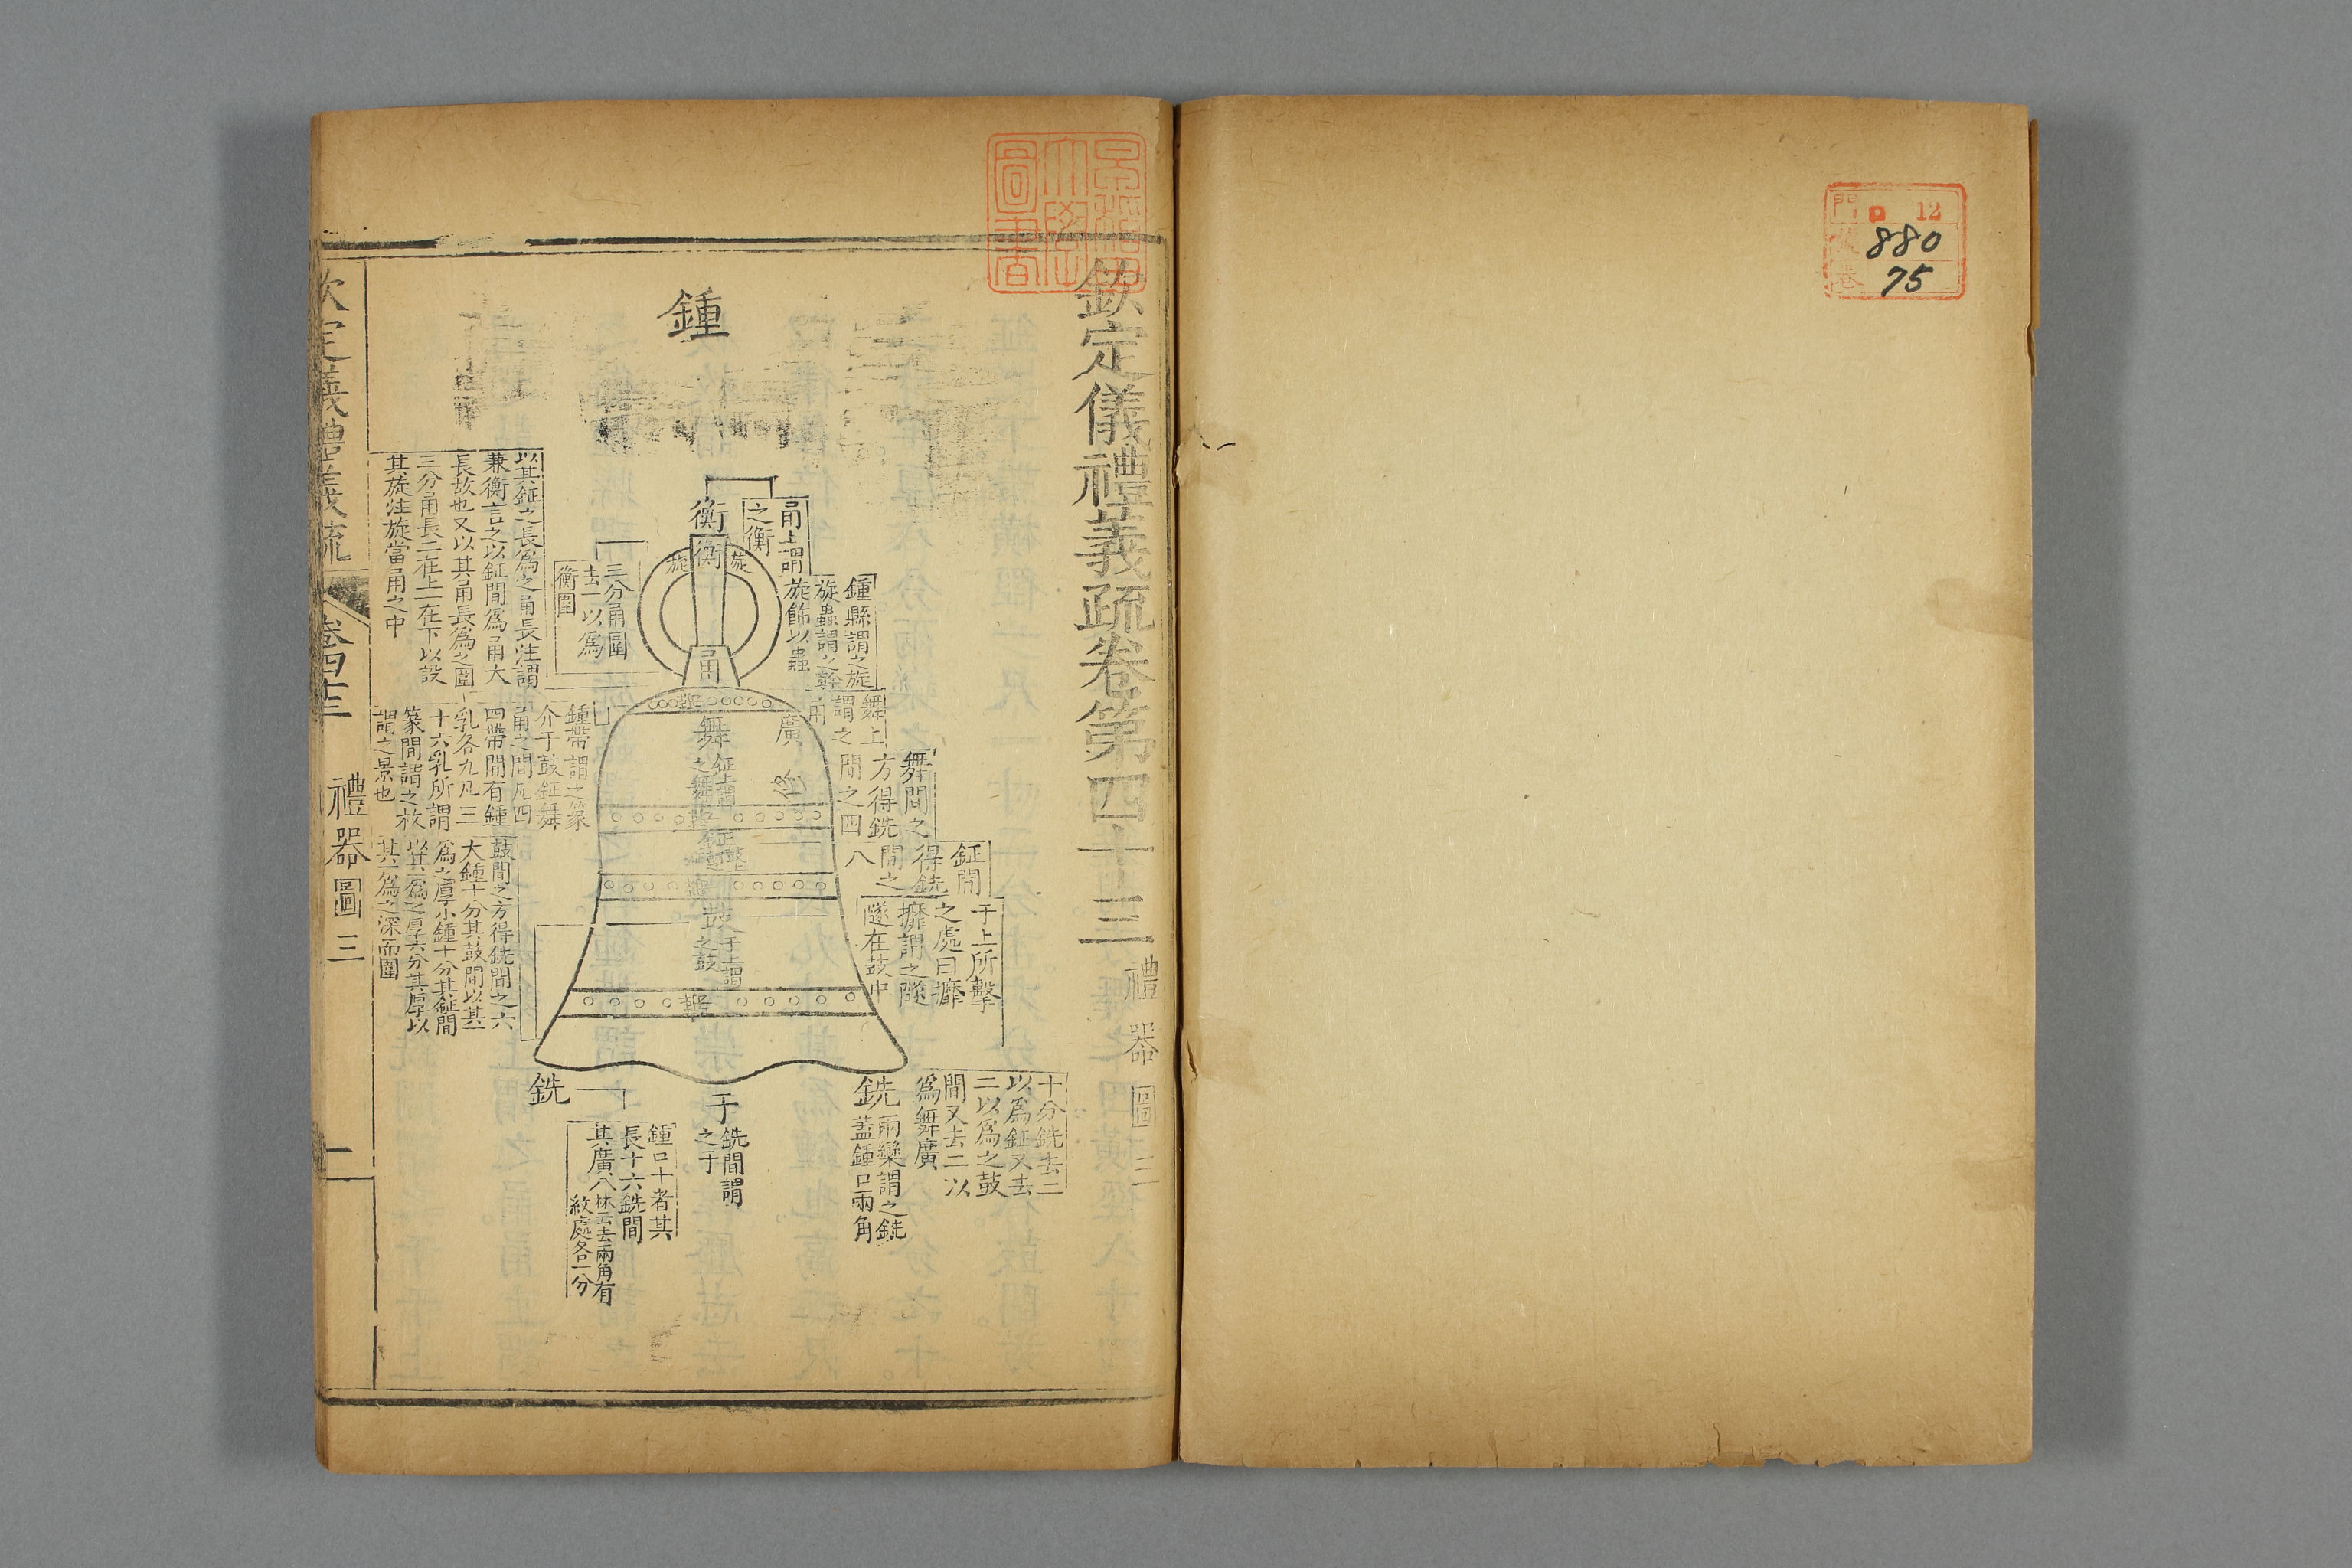 門 ロ 12
號 880
卷 75
欽定儀禮義疏卷第四十三 禮器圖三
鍾
衡
甬上謂
之衡
旋
衡
旋
甬
鍾縣謂之旋
旋蟲謂之幹
旋飾以蟲
三分甬圍
去一以為
衡圍
以其鉦之長為之甬長注謂
兼衡言之以鉦間為甬大
長故也又以其甬長為之圍
三分甬長二在上一在下以設
其旋注旋當甬之中
舞上
謂之
甬
廣
舞
鉦上謂
之舞
舞間之
方得銑
間之四
鍾帶謂之篆
介于鼓鉦舞
甬之間凡四
四帶間有鍾
乳各九凡三
十六乳所謂
篆間謂之枚
謂之景也
鉦
鼓上
鉦間
得銑
間之
八
鼓
于上謂
之鼓
于上所擊
之處曰攠
攠謂之隧
隧在鼓中
鼓間之方得銑間之六
大鍾十分其鼓間以其一
為之厚小鍾十分其鉦間
以其一為之厚六分其厚以
其一為之深而圜
十分銑去二
以為鉦又去
二以為之鼓
間又去二以
為舞廣
銑
兩欒謂之銑
蓋鍾口兩角
于
銑間謂
之于
銑
鍾口十者其
長十六銑間
其廣八
林云去兩角有
紋處各一分
欽定儀禮義疏 卷四十三 禮器圖三 二